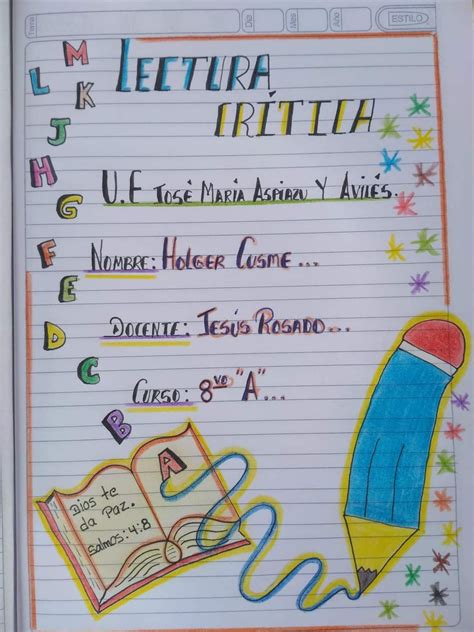 Tema
Día
Mes
Año
ESTILO
LECTURA
CRÍTICA
U.E JOSÉ MARÍA ASPIAZU Y AVILÉS.
NOMBRE: HOLGER CUSME...
DOCENTE: JESÚS ROSADO...
CURSO: 8vo "A"...
M
L
K
J
H
G
F
E
D
C
B
A
Dios te
da Paz.
Salmos: 4:8